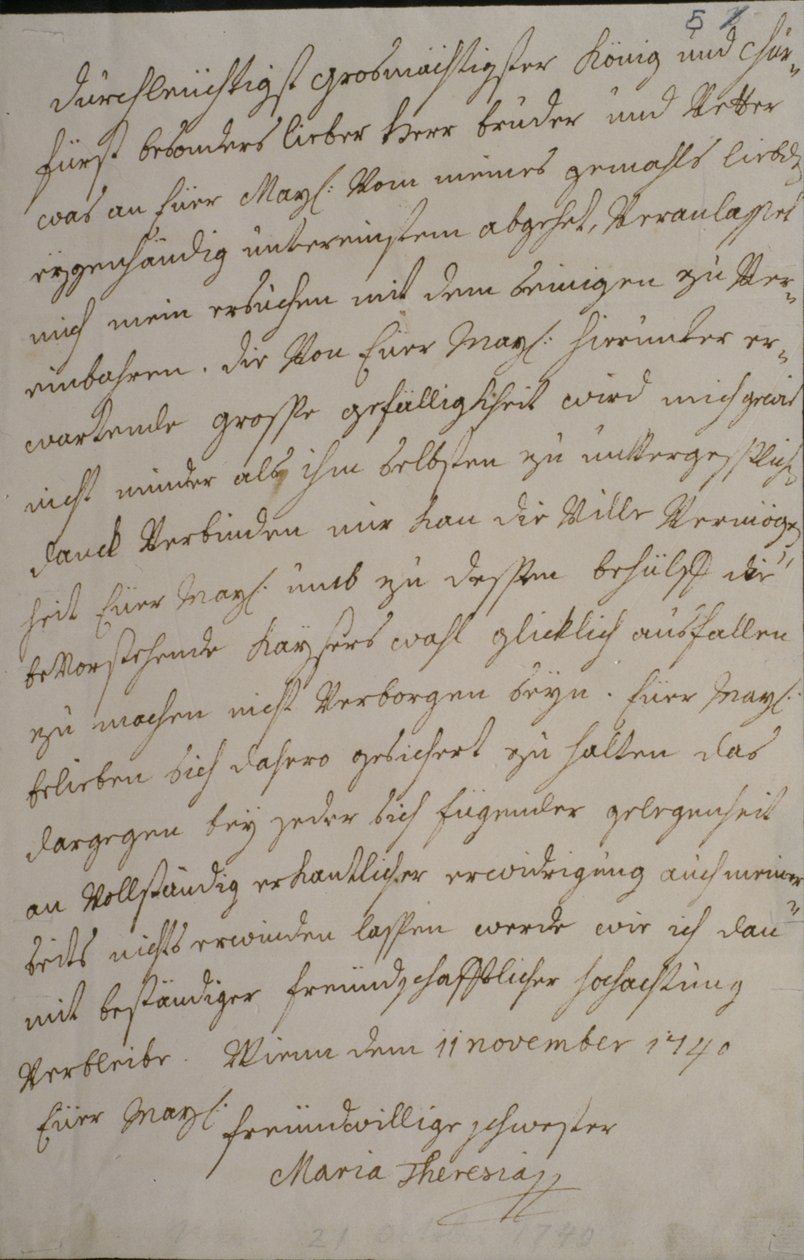 5
dürchleüchtigst grosmächtigster König ünd chür=
fürst besonders lieber Herr brüder ünd Vetter
was an Eüer May: Vom meines gemahls liebd
eygenhändig üntereinstem abgehet, Veranlasset
mich mein ersüchen mit dem seinigen zü Ver=
einbahren. die Von Eüer May: hierünter er=
wartende grosse gefälligkheit wird mich gewis
nicht minder als ihm selbsten zü
danck Verbinden mir kan die Ville Vermög
heit Eüer May: ümb zü dessen behülff die
beVorstehende kaysers wahl glicklich aüsfallen
zü machen nicht Verborgen seyn. Eüer May:
belieben sich dahero gesichert zü halten das
dargegen bey jeder sich fügender gelegenheit
an Vollständig erkantlicher erwidrigüng aüch meiner=
seits nichts erwinden lassen werde wie ich dan
mit beständiger freündschafftlicher hochachtüng
Verbleibe. Wienn dem 11 november 1740
Eüer May:
freündwillige schwester
Maria Theresia
21 1740